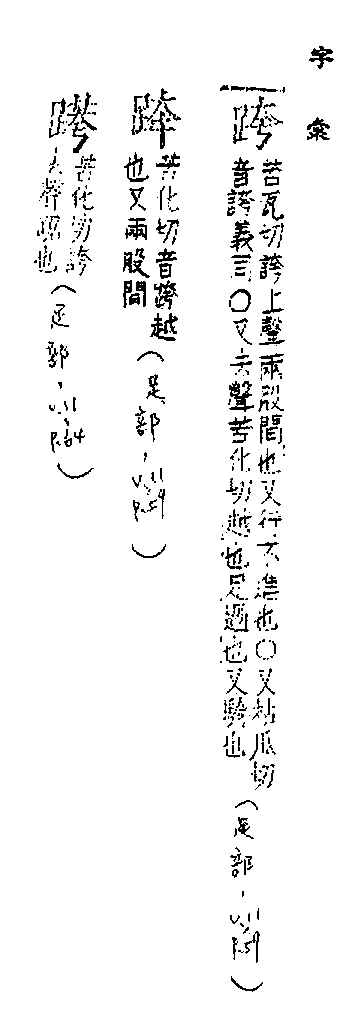 字彙
跨
苦瓦切誇上聲兩股間也又行不進也○又枯瓜切
音誇義同○又去聲苦化切越也足過也又騎也(足部，V.11 P.59)
苦化切音跨越
也又兩股間(足部，V.11 P.59)
苦化切誇
去聲踞也(足部，V.11 P.64)